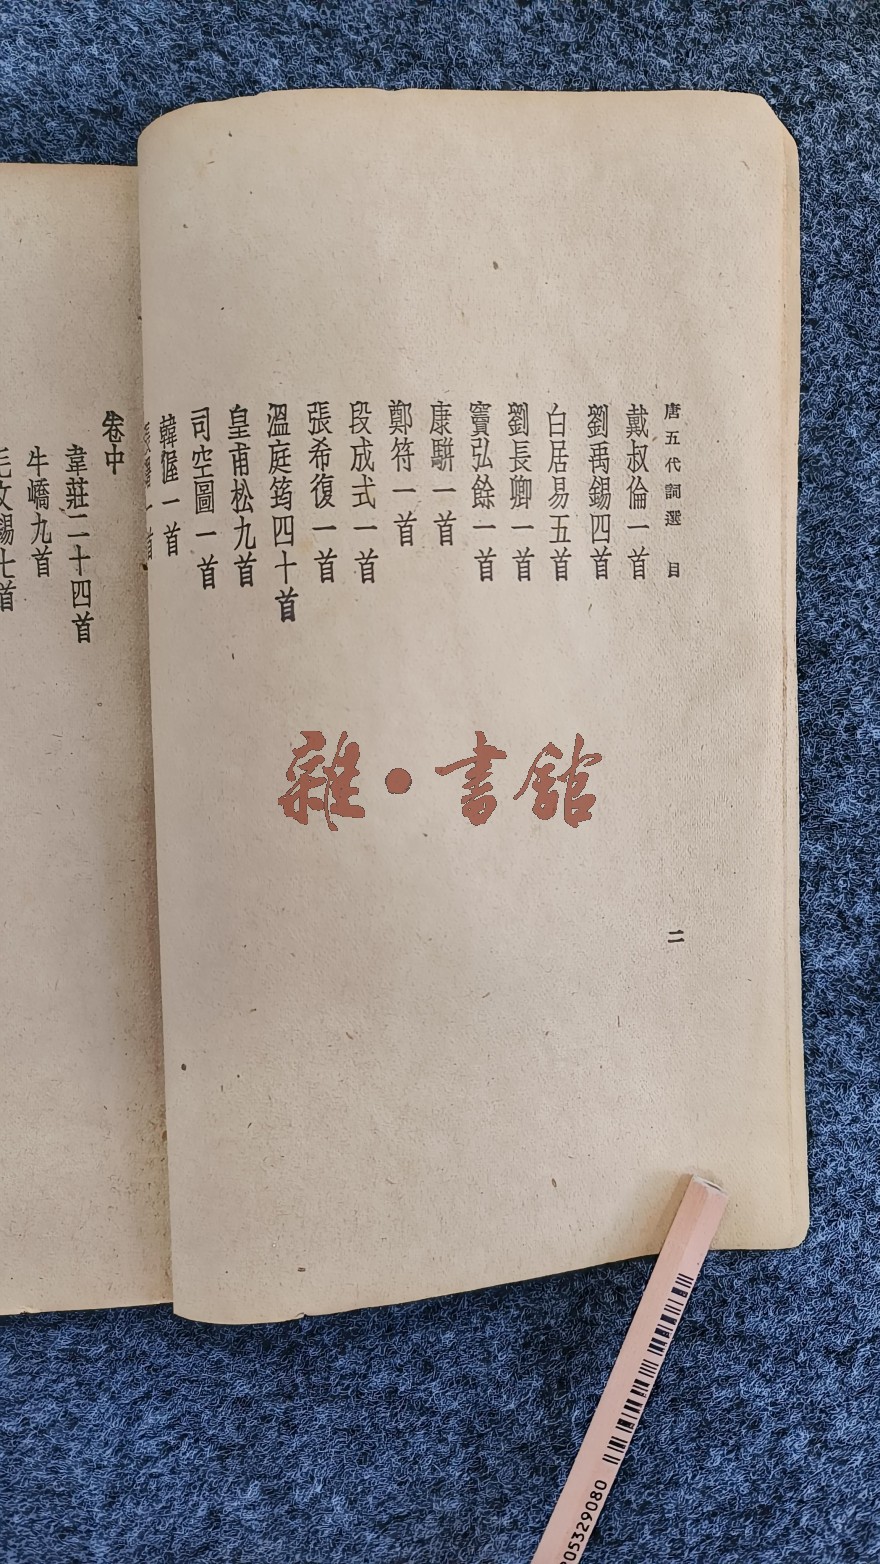 唐五代詞選 目
二
戴叔倫一首
劉禹錫四首
白居易五首
劉長卿一首
竇弘餘一首
康駢一首
鄭符一首
段成式一首
張希復一首
溫庭筠四十首
皇甫松九首
司空圖一首
韓偓一首
一首
卷中
韋莊二十四首
牛嶠九首
毛文錫七首
雜·書館
05329080